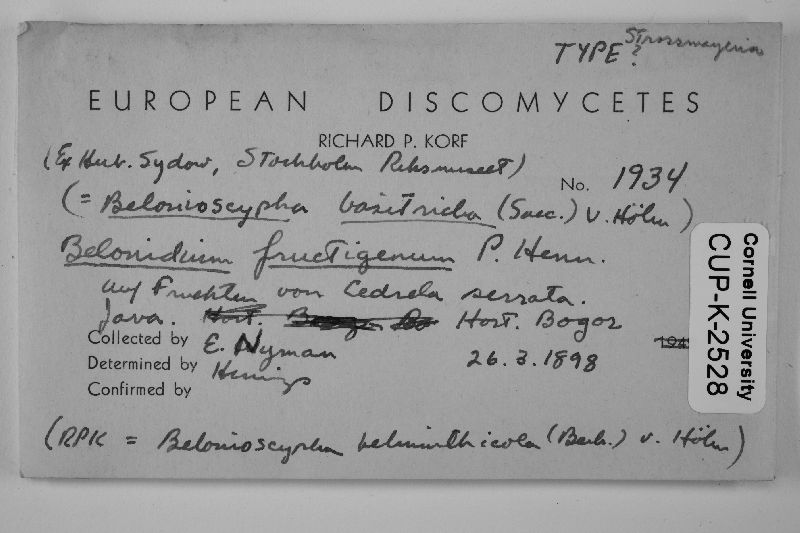 Strossmayeria
TYPE?
EUROPEAN DISCOMYCETES
RICHARD P. KORF
(Ex Herb. Sydow, Stockholm Riksmuseet)
No. 1934
(= Belonioscypha basitricha (Sacc.) v. Höhn)
Belonidium fructigenum P. Henn.
auf Fruchten von Cedrela serrata.
Java. Hort. Hort. Bogor
Collected by E. Nyman
26.3.1898
Determined by Hennings
Confirmed by
(RPK = Belonioscypha helminthicola (Berk.) v. Höhn)
Cornell University
CUP-K-2528